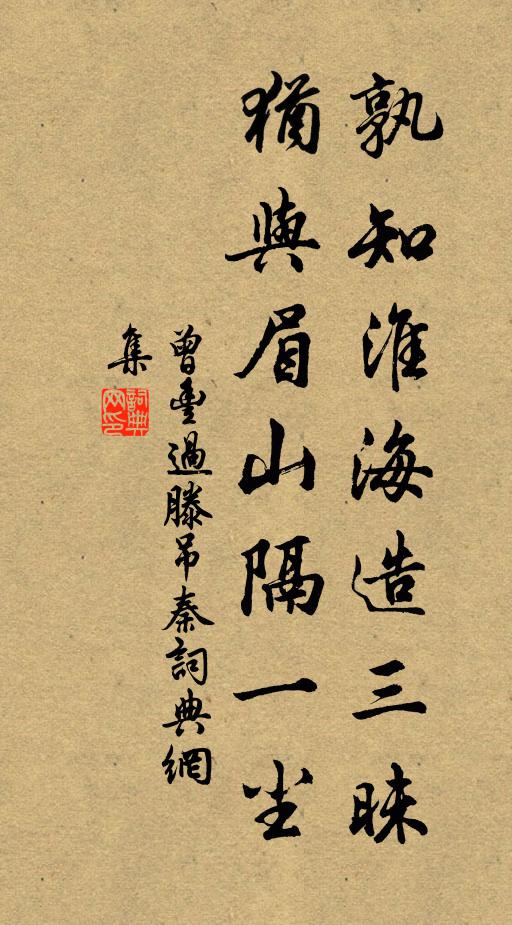 孰知淮海造三昧
猶與眉山隔一尘
曾豐過滕吊秦詞典網
集
詞典
网印